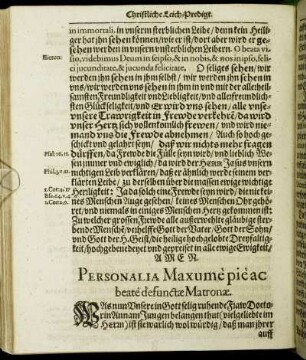 Christliche Leich-Predigt.
in immortali, in vnsern sterblichen Leibe / denn kein Heili-
ger hat jhn sehen können / wie er ist / dort aber wird er ge-
sehen werden in vnsern vnsterblichen Leibern. O beata vi-
sio, videbimus Deum in seipso, & in nobis, & nos in ipso, feli-
ci jucunditate, & jucunda felicitate. O seliges sehen / wir
werden jhn sehen in jhm selbst / wir werden jhn sehen in
vns / wir werden vns sehen in jhm / in vnd mit der allerheil-
samsten Freundligkeit vnd Liebligkeit / vnd allerfreundlich-
sten Glückseligkeit / vnd Er wird vns sehen / alle vnse-
vnsere Trawrigkeit in Frewde verkehrē / da wird
vnser Hertz sich vollenkomlich frewen / vnd wird nie-
mand vns die Frewde abnehmen / Auch so hoch ge-
schickt vnd gelahrt seyn / daß wir nichts mehr fragen
dürffen / da Frewde die Fülle seyn wird / vnd lieblich We-
sen immer vnd ewiglich / da wird der Herr Jesus vnsern
nichtigen Leib verklären / daß er ähnlich werde seinem ver-
klärten Leibe / zu der selben über die massen ewige wichtige
Herrligkeit: Ja da solche eine Frewde seyn wird / die nie kei-
nes Menschen Auge gesehen / keines Menschen Ohr gehö-
ret / vnd niemals in einiges Menschen Hertz gekommen ist:
Zu welcher grossen Frewde alle außerwehlte gläubige ster-
bende Menschē / verhelffe Gott der Vater / Gott der Sohn /
vnd Gott der H. Geist / die heilige hochgelobte Dreyfaltig-
keit / hochgebenedeyet vnd gepreiset in alle ewige Ewigkeit /
A M E N.
PERSONALIA Maxumè piè ac
beatè defunctæ Matronæ.
WAs nun Vnsere in Gott selig ruhende Fraw Docto-
rin Annam Jungen belangen thut (vielgeliebte im
Herrn) ist sie warlich wol würdig / daß man jhrer
auff